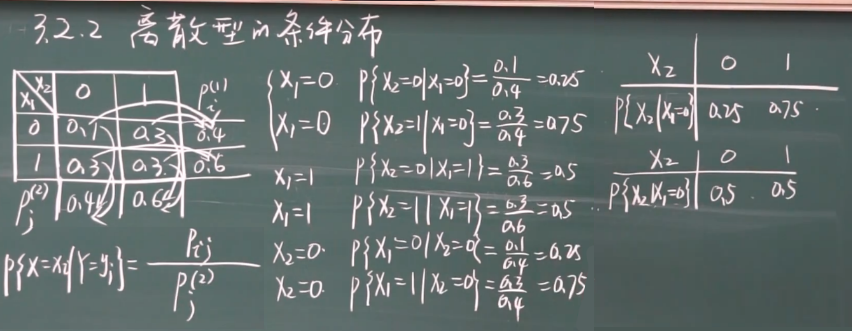 3.2.2 离散型的条件分布
X₁\X₂ 0 1 Pᵢ⁽¹⁾
0 0.1 0.3 0.4
1 0.3 0.3 0.6
Pⱼ⁽²⁾ 0.4 0.6
P{X=xᵢ|Y=yⱼ}=Pᵢⱼ/Pⱼ⁽²⁾
X₁=0 P{X₂=0|X₁=0}=0.1/0.4=0.25
X₁=0 P{X₂=1|X₁=0}=0.3/0.4=0.75
X₁=1 P{X₂=0|X₁=1}=0.3/0.6=0.5
X₁=1 P{X₂=1|X₁=1}=0.3/0.6=0.5
X₂=0. P{X₁=0|X₂=0}=0.1/0.4=0.25
X₂=0. P{X₁=1|X₂=0}=0.3/0.4=0.75
X₂ 0 1
P{X₂|X₁=0} 0.25 0.75.
X₂ 0 1
P{X₂|X₁=0} 0.5 0.5